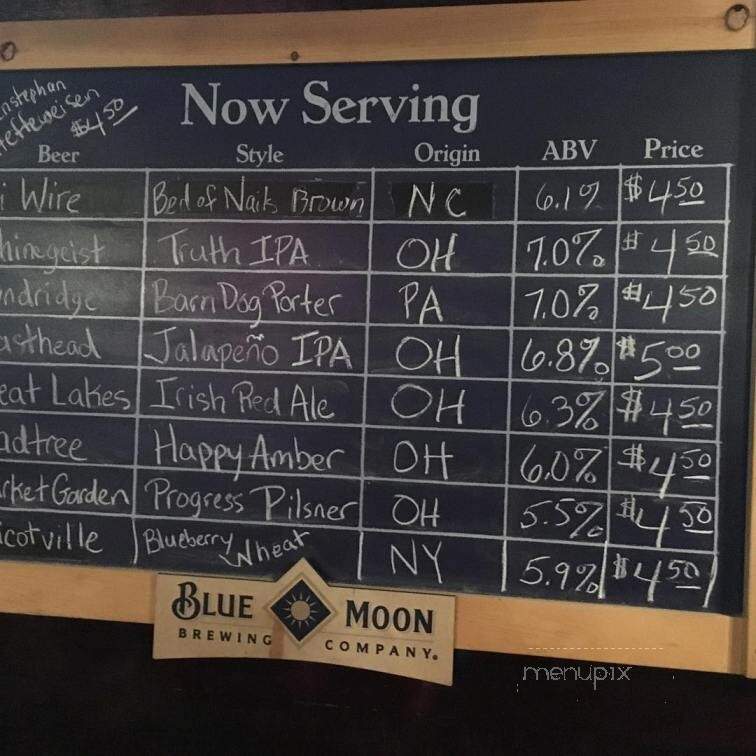 nstephan
effeweisen
$4 50
Now Serving
Beer Style Origin ABV Price
i Wire Bed of Nails Brown NC 6.1% $4 50
hinegeist Truth IPA OH 7.0% $4 50
ndridge Barn Dog Porter PA 7.0% $4 50
asthead Jalapeño IPA OH 6.8% $5 00
eat Lakes Irish Red Ale OH 6.3% $4 50
adtree Happy Amber OH 6.0% $4 50
rket Garden Progress Pilsner OH 5.5% $4 50
icotville Blueberry Wheat NY 5.9% $4 50
BLUE MOON
BREWING COMPANY®
menupix